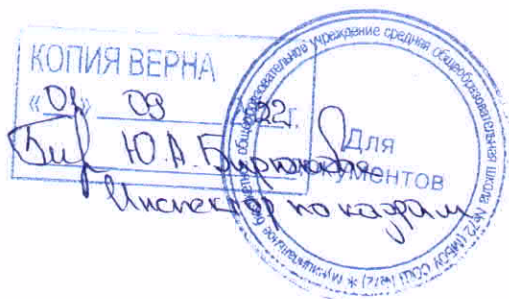 КОПИЯ ВЕРНА
«01» 09 2022г.
Бир Ю.А. Бирюкова
Инспектор по кадрам
Для
документов
Муниципальное бюджетное общеобразовательное учреждение средняя общеобразовательная школа №72 (МБОУ СОШ №72) *